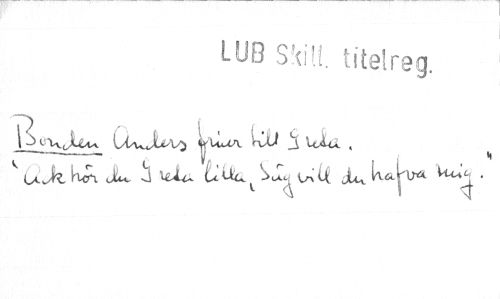 LUB Skill. titelreg.
Bonden Anders friar till Greta.
"Ack hör du Greta lilla, Säg vill du hafva mig."